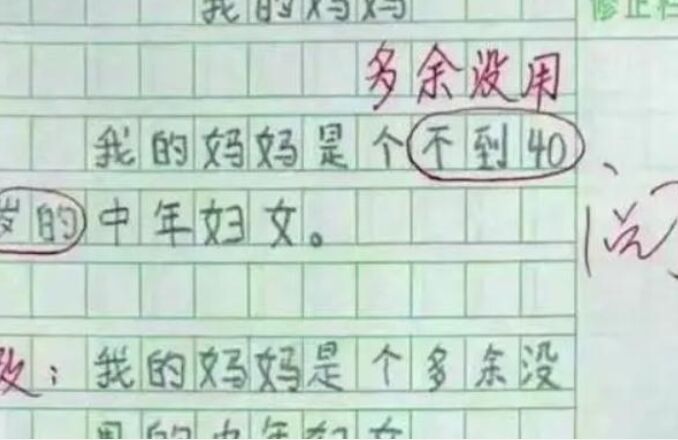 我的妈妈
修正栏
多余没用
我的妈妈是个不到40
岁的中年妇女。
改：我的妈妈是个多余没
用的中年妇女